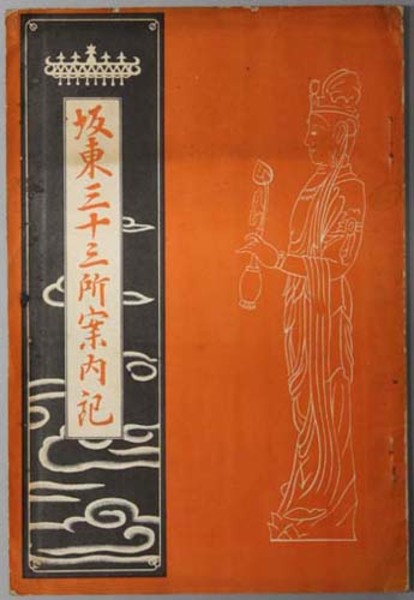 坂東三十三所案内記